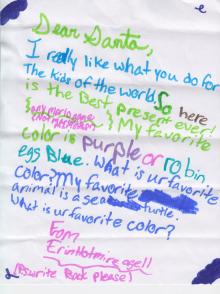 Dear Santa,
I really like what you do for
The kids of the world. So here
is the Best present ever!
{any mario game
} My favorite
color is purple or robin
egg Blue. What is ur favorite
color? My favorite
animal is a sea turtle.
What is ur favorite color?
From
Erin age 11
(Pswrite Back please)